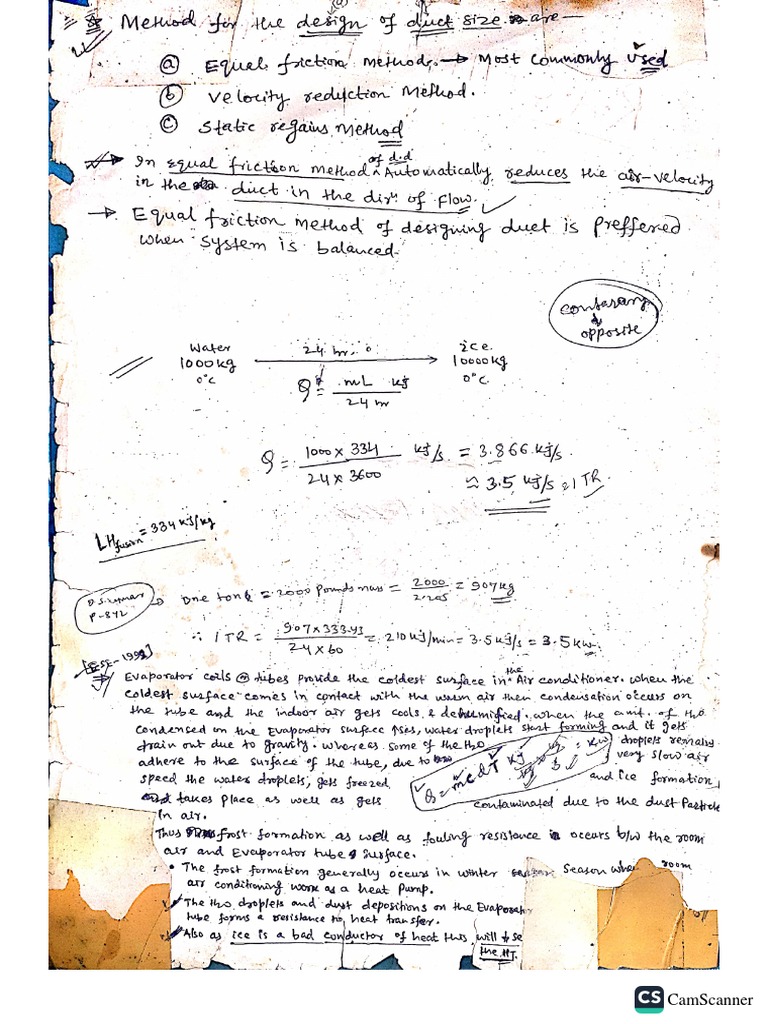 Method for the design of duct size are —
(a) Equal friction method. → Most commonly used
(b) velocity reduction Method.
(c) Static regains Method
→ In equal friction method of d.d Automatically reduces the air-velocity
in the duct in the dirⁿ of Flow.
→ Equal friction method of designing duct is preffered
when system is balanced.
Contarary
& opposite
Water 24 hr. ice.
1000kg → 10000kg
0°C 0°C.
Q = mL kj / 24 hr
Q = 1000 x 334 / 24 x 3600 kj/s = 3.866 kj/s.
≈ 3.5 kj/s ≈ 1 TR
LHfusion = 334 kj/kg
D.S. Kumar
P-842
→ One ton = 2000 Pounds mass = 2000 / 2.205 = 907 kg
∴ 1 TR = 907 x 333.43 / 24 x 60 = 210 kj/min = 3.5 kj/s = 3.5 kw
[ESE-1992]
⇒ Evaporator coils @ tubes provide the coldest surface in the Air conditioner. when the
coldest surface comes in contact with the warm air then condensation occurs on
the tube and the indoor air gets cools & dehumified. when the amt. of H₂O
condensed on the Evaporator surface rises, water droplets start forming and it gets
drain out due to gravity. Whereas some of the H₂O droplets remains
adhere to the surface of the tube, due to very slow air
speed the water droplets, gets freezed and Ice formation
takes place as well as gets contaminated due to the dust Particle
in air.
Q = mcdT kj
= kw
Thus frost formation as well as fouling resistance occurs b/w the room
air and Evaporator tubes surface.
• The frost formation generally occurs in winter Season when room
air conditioning work as a heat Pump.
• The H₂O droplets and dust depositions on the Evaporator
tube forms a resistance to heat transfer.
• Also as ice is a bad conductor of heat this will ↓se
the HT.
CS CamScanner